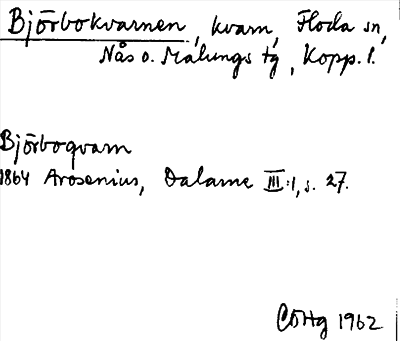 Björbokvarnen, kvarn, Floda sn,
Nås o. Malungs tg, Kopp. l.
Björboqvarn
1864 Arosenius, Dalarne III:1, s. 27.
1962